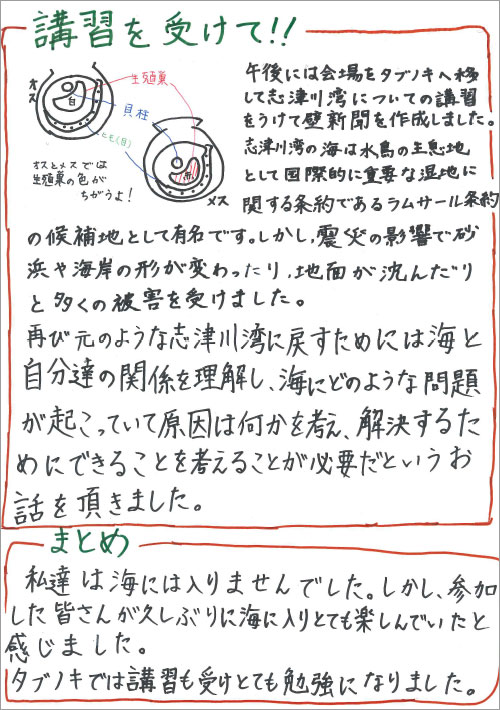 講習を受けて!!
オス
生殖巣
白
貝柱
とも(目)
赤
メス
オスとメスでは
生殖巣の色が
ちがうよ!
午後には会場をタブノキへ移
して志津川湾についての講習
をうけて壁新聞を作成しました。
志津川湾の海は水鳥の生息地
として国際的に重要な湿地に
関する条約であるラムサール条約
の候補地として有名です。しかし、震災の影響で砂
浜や海岸の形が変わったり、地面が沈んだり
と多くの被害を受けました。
再び元のような志津川湾に戻すためには海と
自分達の関係を理解し、海にどのような問題
が起こっていて原因は何かを考え、解決するた
めにできることを考えることが必要だというお
話を頂きました。
まとめ
私達は海には入りませんでした。しかし、参加
した皆さんが久しぶりに海に入りとても楽しんでいたと
感じました。
タブノキでは講習も受けとても勉強になりました。